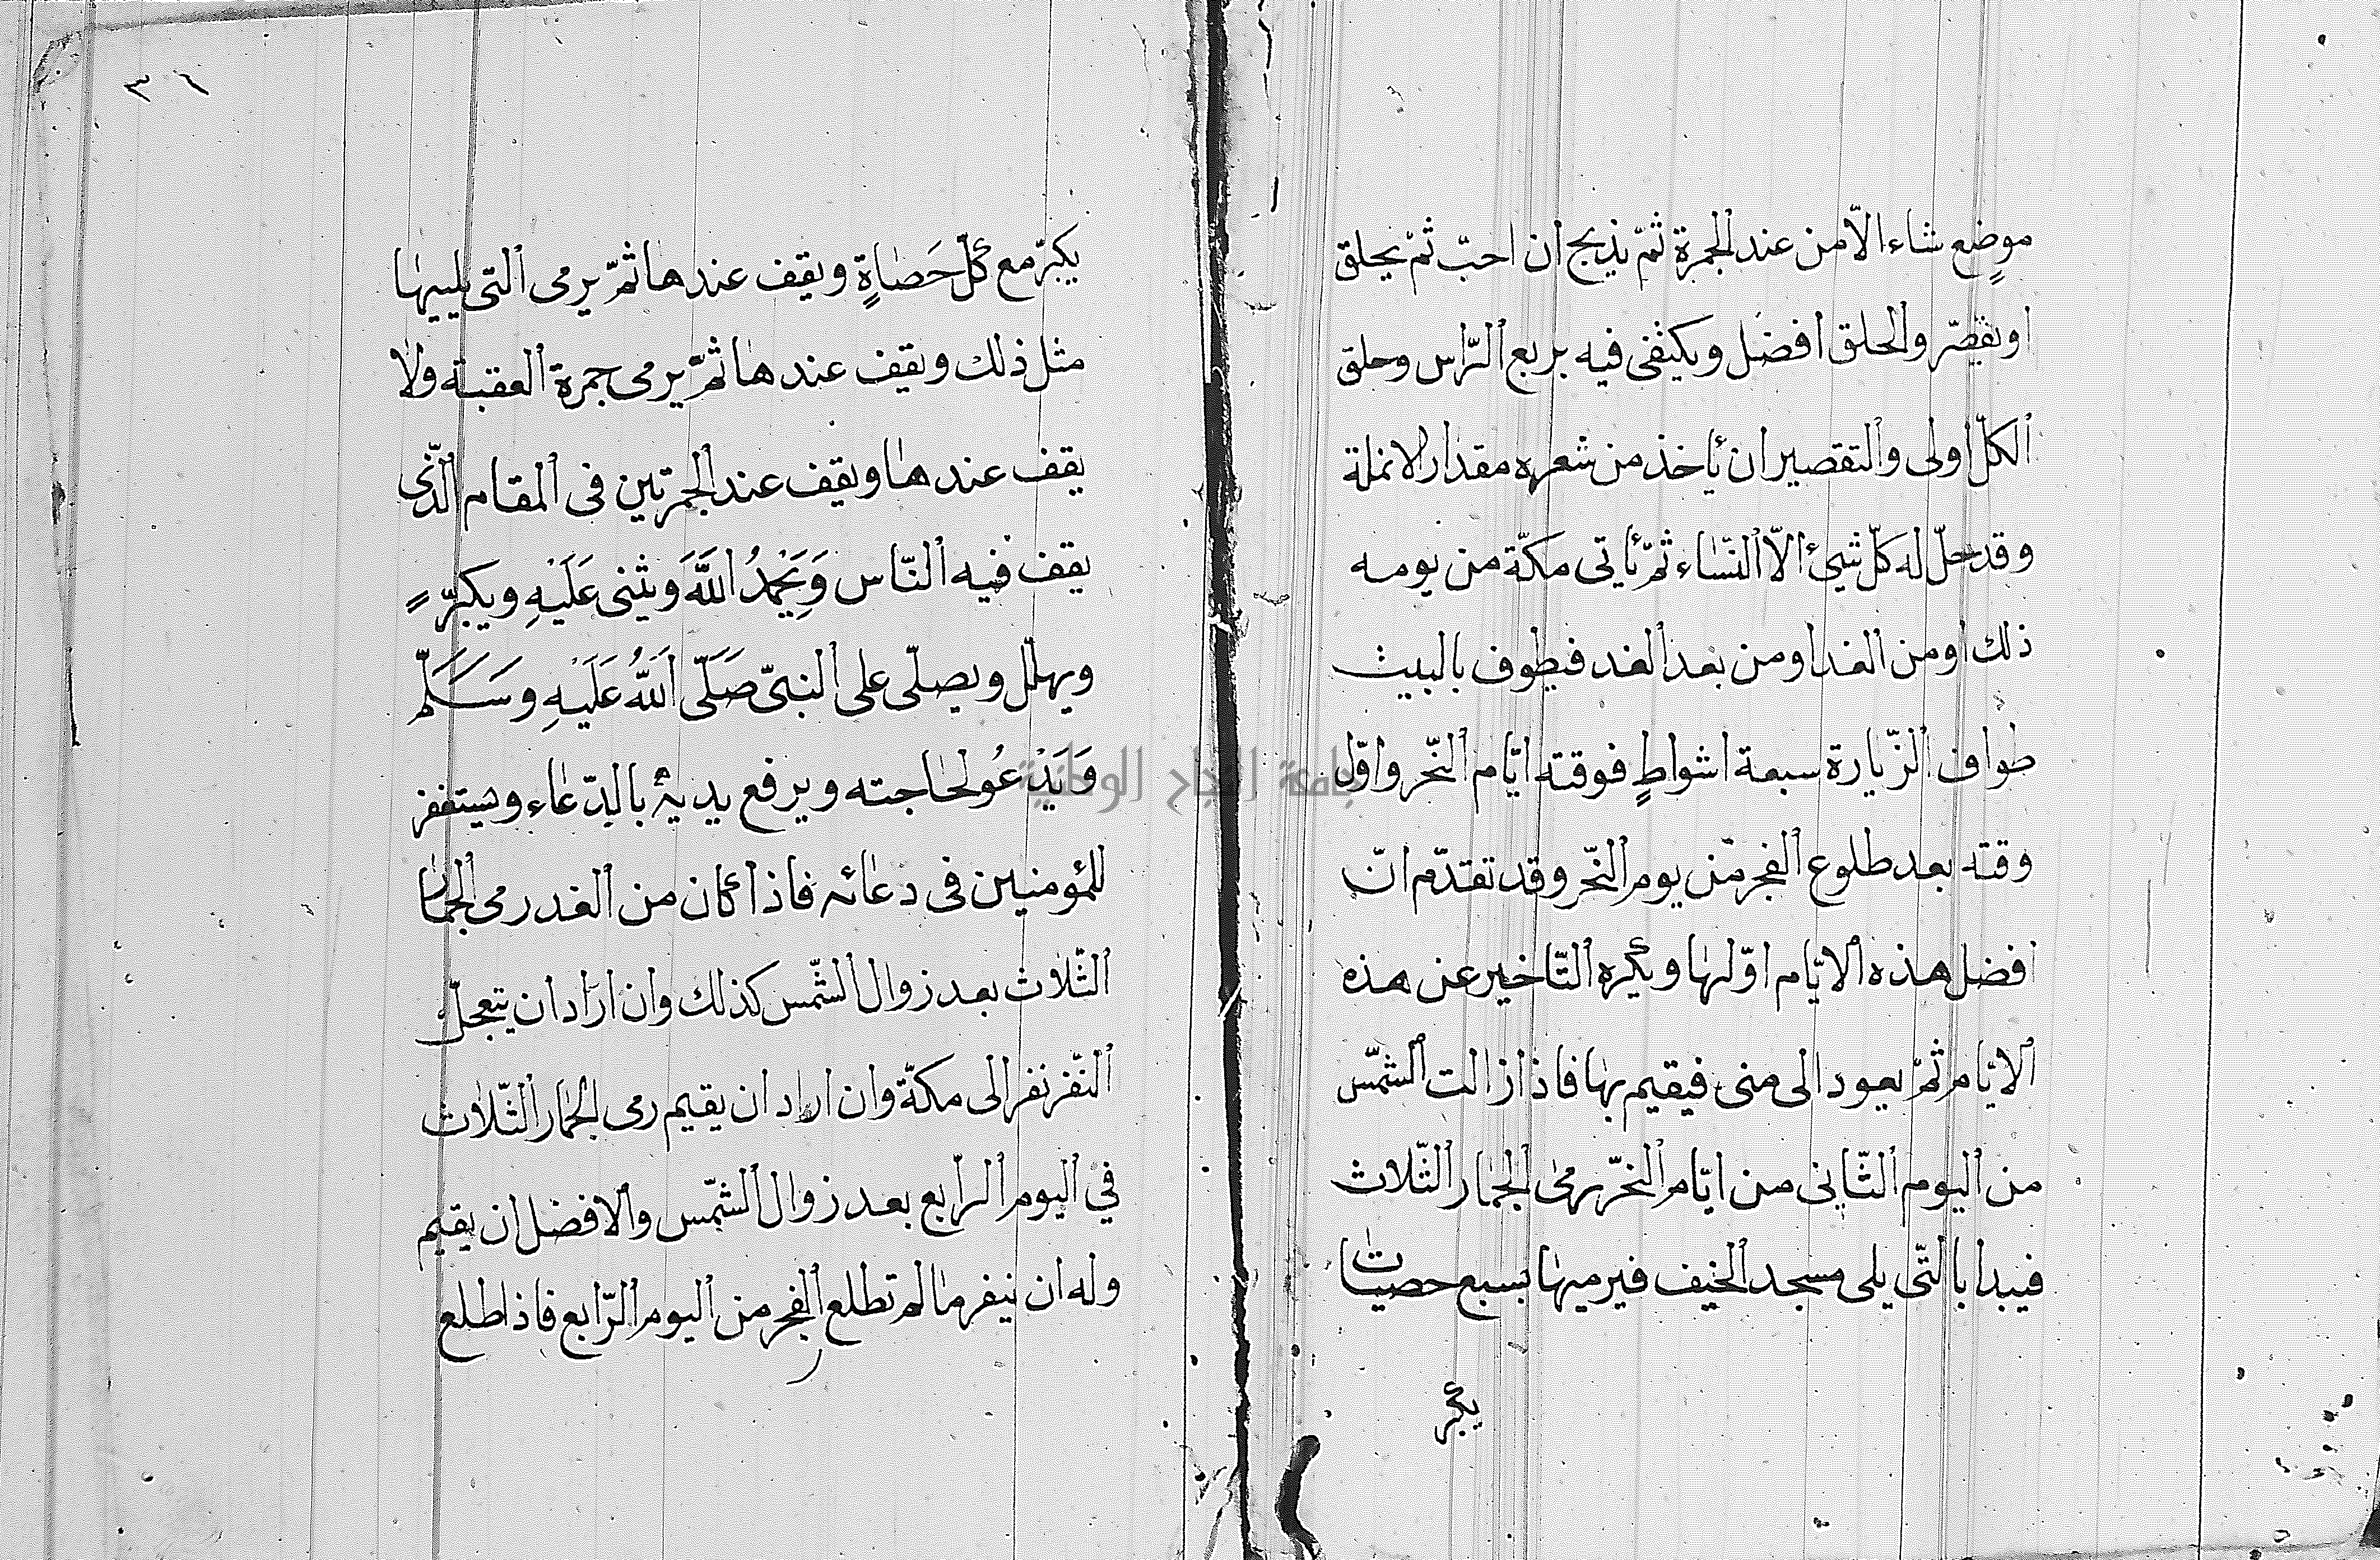 موضع شاء الّا من عند الجمرة ثمّ يذبح ان احبّ ثمّ يحلق
او يقصّر والحلق افضل ويكتفى فيه بربع الرّاس وحلق
الكلّ اولى والتقصير ان يأخذ من شعره مقدار الانملة
وقد حلّ له كلّ شيئ الّا النّساء ثمّ يأتى مكّة من يومه
ذلك او من الغد او من بعد الغد فيطوف بالبيت
طواف الزّيارة سبعة اشواطٍ فوقته ايّام النّحر واوّل
وقته بعد طلوع الفجر من يوم النّحر وقد تقدّم انّ
افضل هذه الايّام اوّلها ويكره التّاخير عن هذه
الايّام ثمّ يعود الى منى فيقيم بها فاذا زالت الشّمس
من اليوم الثّانى من ايّام النّحر رمى الجمار الثّلاث
فيبدا بالتّى يلى مسجد الخيف فيرميها بسبع حصيات
يكبر
٣١
يكبّر مع كلّ حَصاةٍ ويقف عندها ثمّ يرمى التى يليها
مثل ذلك ويقف عندها ثمّ يرمى جمرة العقبة ولا
يقف عندها ويقف عند الجمرتين فى المقام الّذى
يقف فيه النّاس وَيَحْمَدُ اللّٰهَ ويثنى عَلَيْهِ ويكبرّ
ويهلّل ويصلّى على النبىّ صَلَّى اللّٰهُ عَلَيْهِ وسَلَّمَ
وَيَدْعُو لحاجته ويرفع يديه بالدّعاء ويستغفر
للمؤمنين فى دعائه فاذا كان من الغد رمى الجمار
الثّلاث بعد زوال الشّمس كذلك وان اراد ان يتعجلّ
النّفر نفر الى مكّة وان اراد ان يقيم رمى الجمار الثّلاث
في اليوم الرّابع بعد زوال الشّمس والافضل ان يقيم
وله ان ينفر مالم تطلع الفجر من اليوم الرّابع فاذا طلع
جامعة النجاح الوطنية